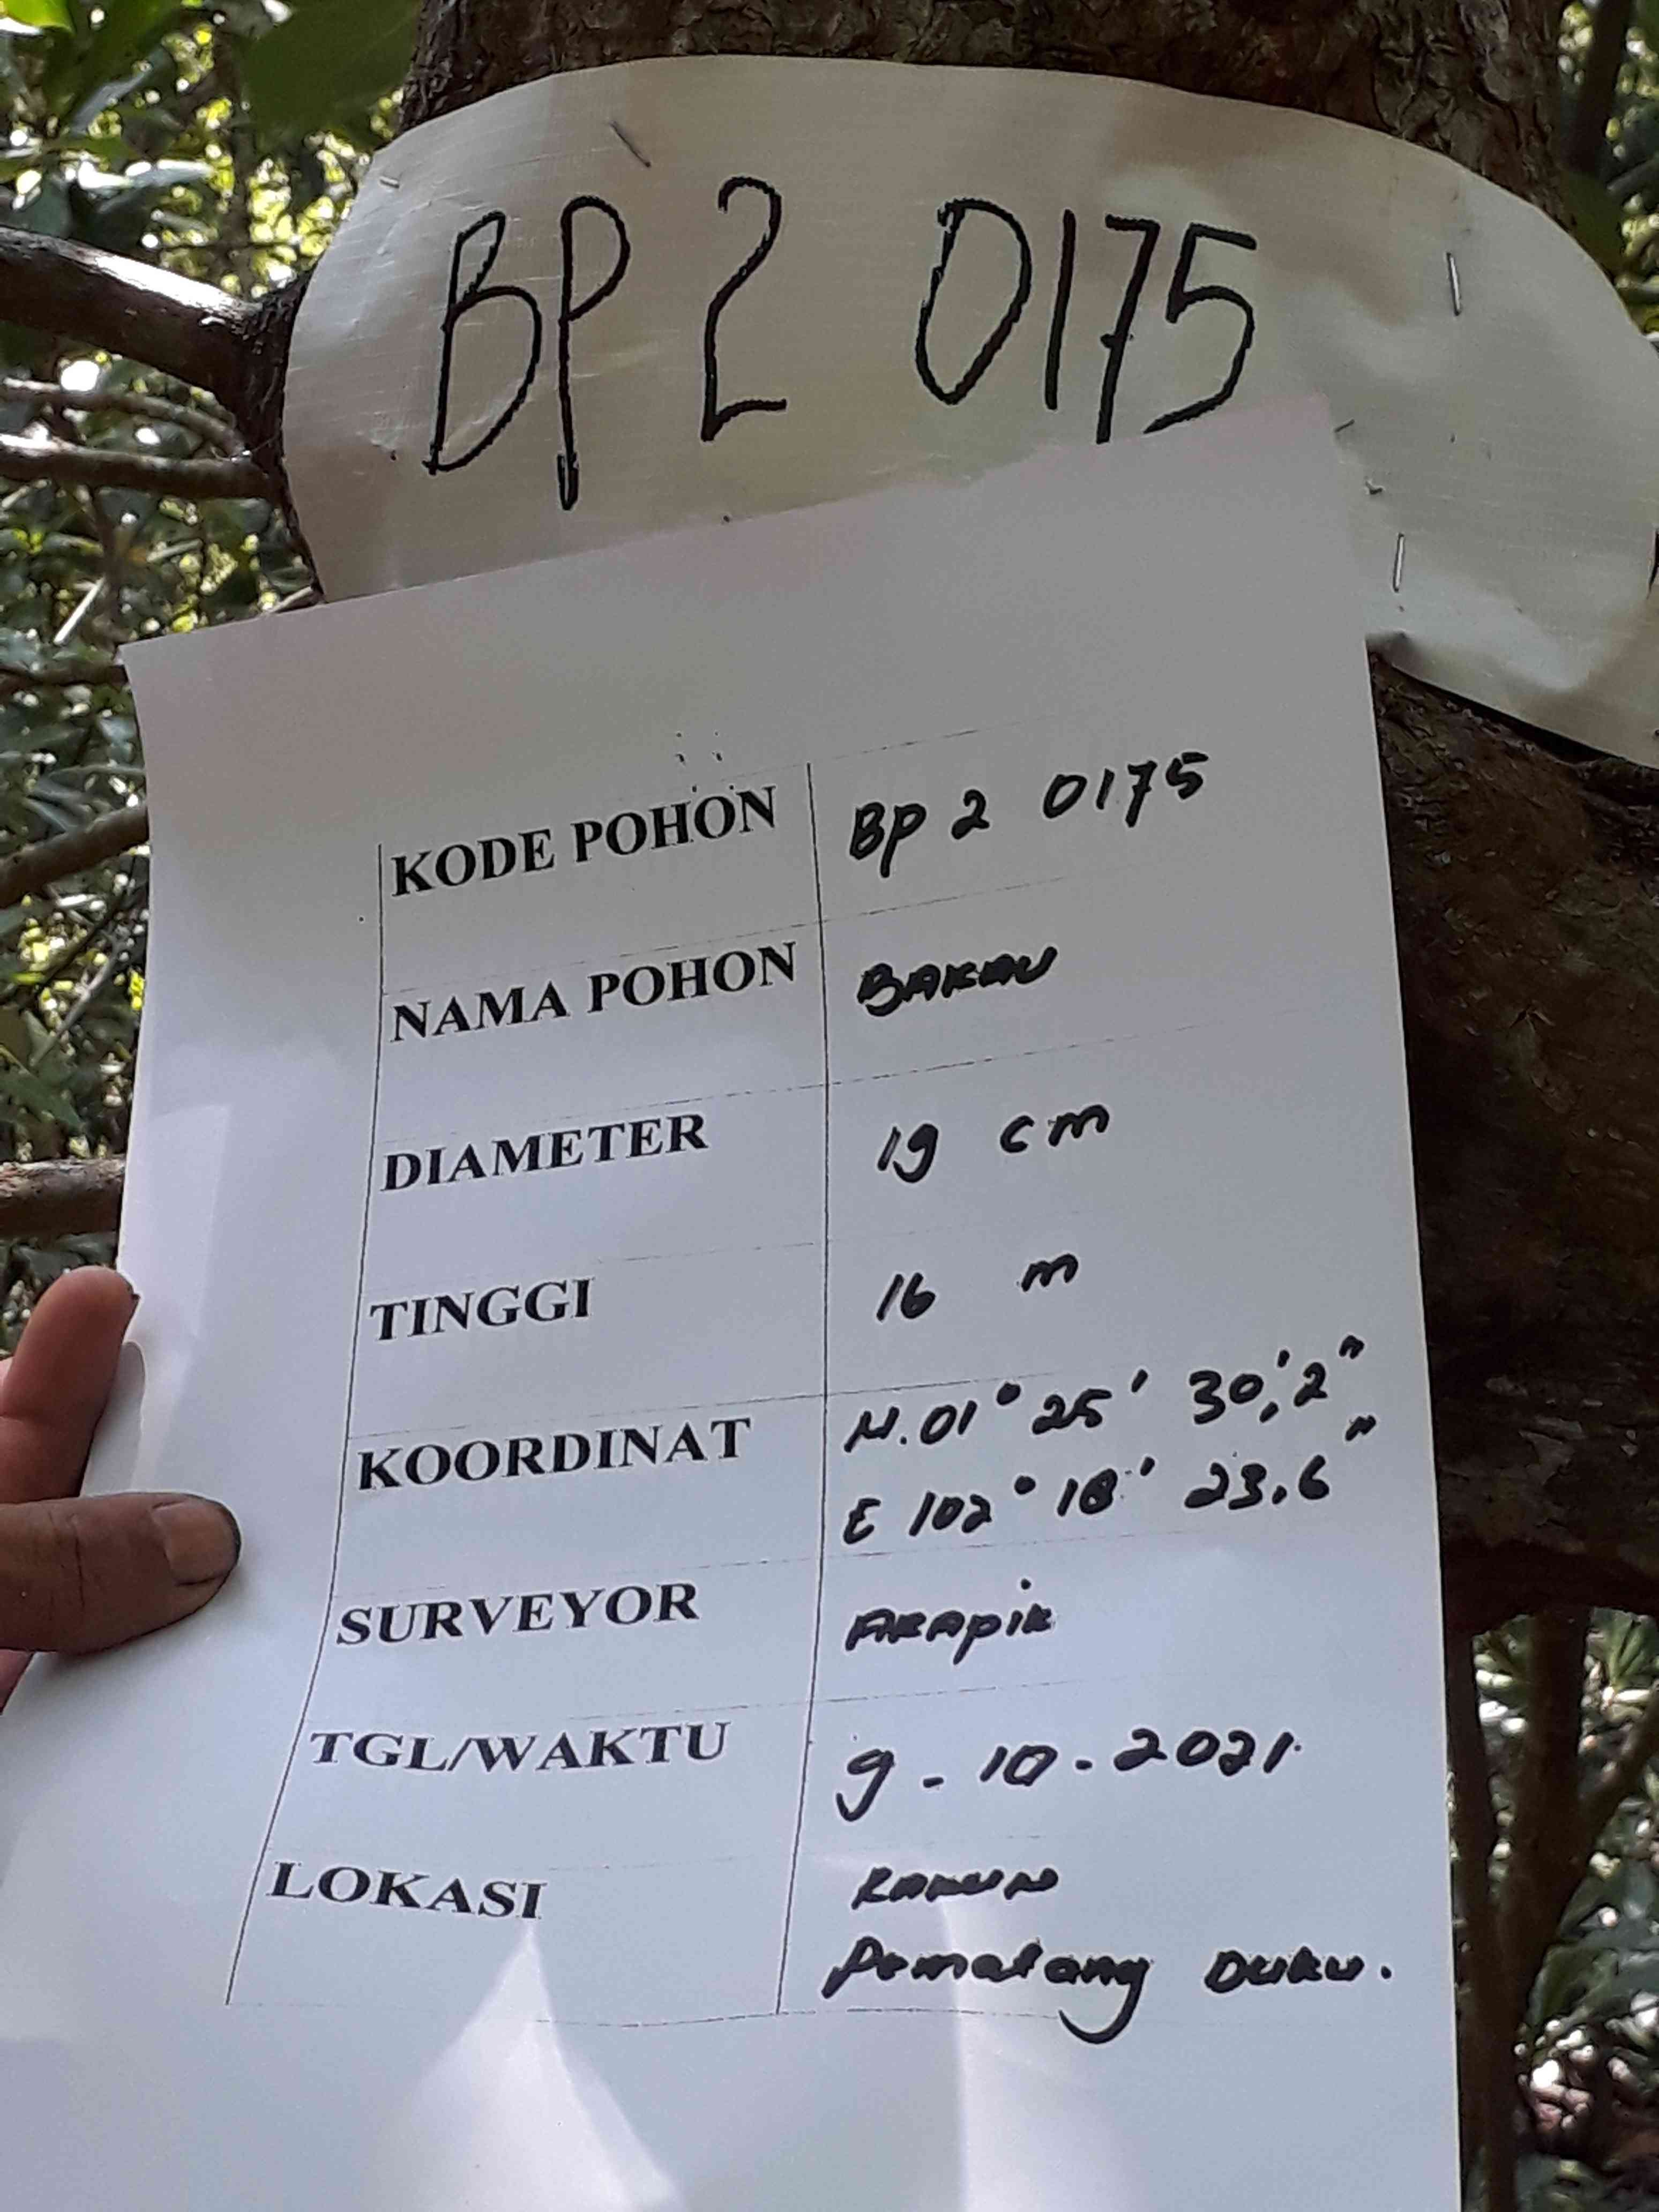 BP 2 0175
KODE POHON BP 2 0175
NAMA POHON BAKAU
DIAMETER 19 cm
TINGGI 16 m
KOORDINAT N.01° 25' 30,'2"
E 102° 18' 23.6"
SURVEYOR
TGL/WAKTU 9 - 10 - 2021.
LOKASI
Pematang DUKU.